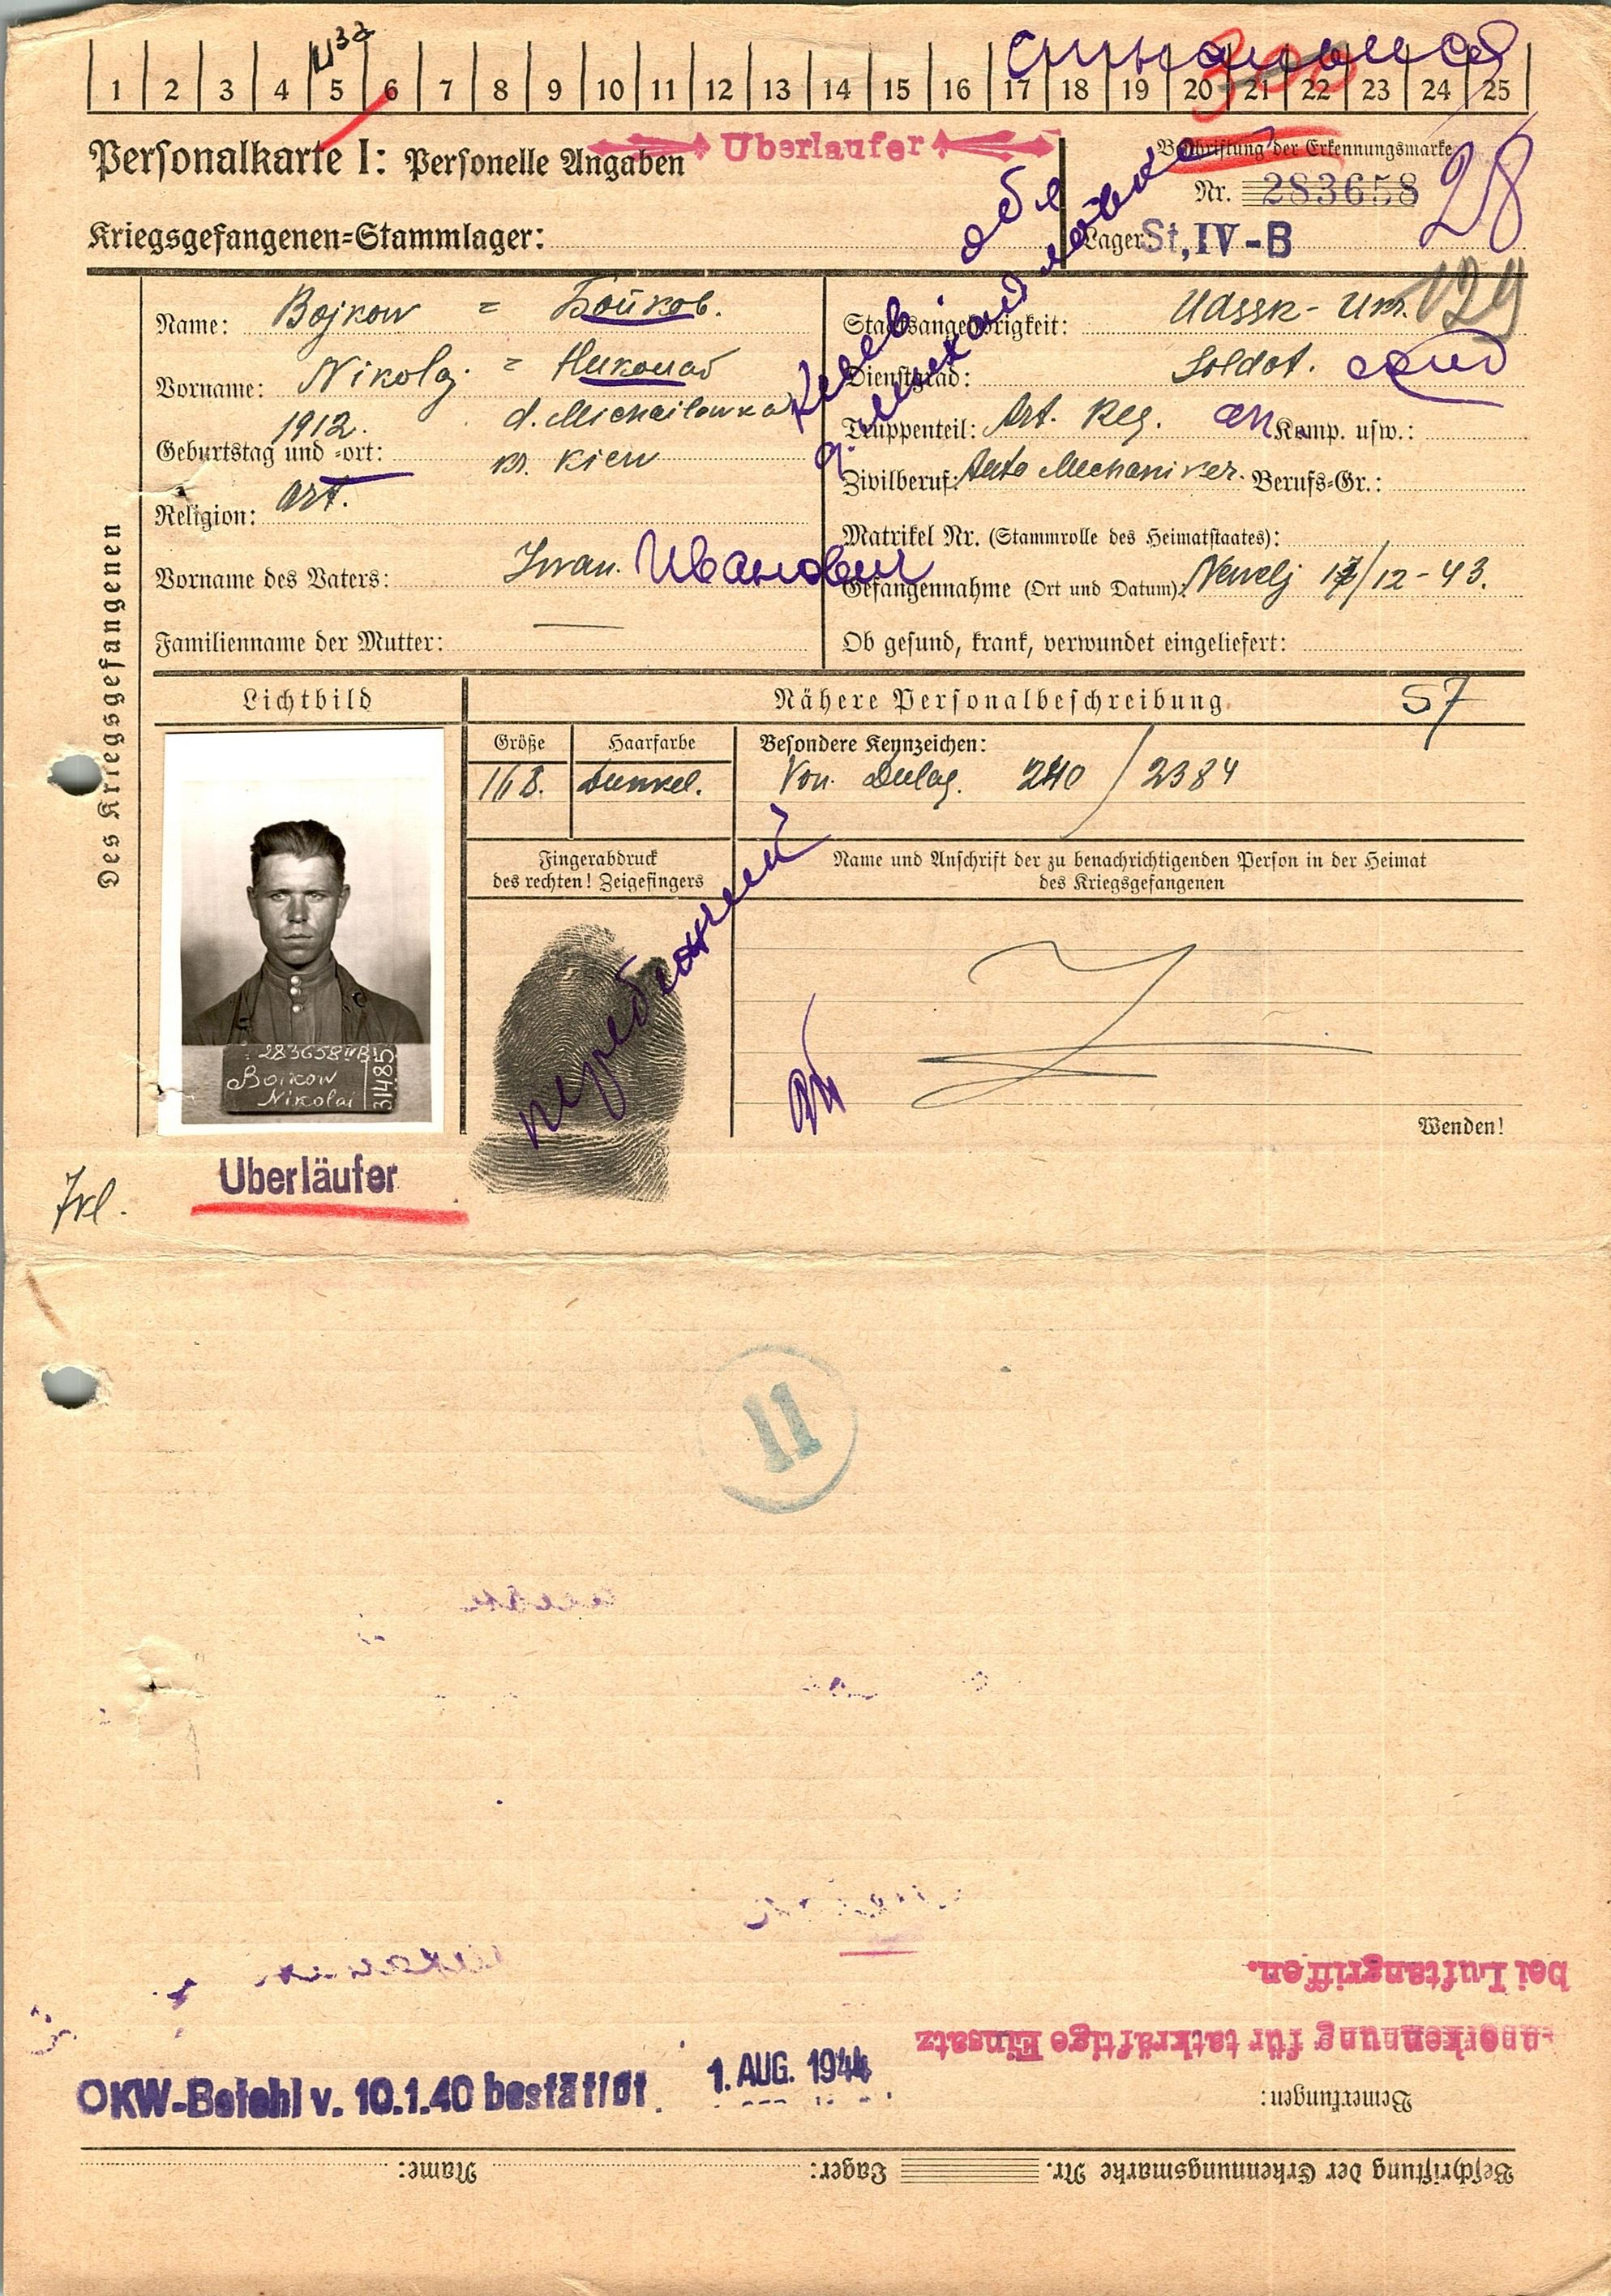 1 2 3 4 5 6 7 8 9 10 11 12 13 14 15 16 17 18 19 20 21 22 23 24 25
Personalkarte I: Personelle Angaben
Uberlaufer
Beschriftung der Erkennungsmarke
Nr. 283658
28
Kriegsgefangenen-Stammlager:
Lager: St, IV-B
129
Des Kriegsgefangenen
Name: Bojkow = Бойков.
Vorname: Nikolaj. = Николай
Geburtstag und -ort: 1912. d. Michailowka
kr. Kiew
Religion: ort.
Vorname des Vaters: Iwan. Иванович
Familienname der Mutter: —
Staatsangehörigkeit: Udssr - Ukr.
Dienstgrad: Soldat.
Truppenteil: Art. Reg. Komp. usw.:
Zivilberuf: Auto Mechaniker. Berufs-Gr.:
Matrikel Nr. (Stammrolle des Heimatstaates):
Gefangennahme (Ort und Datum): Newelj 17/12-43.
Ob gesund, krank, verwundet eingeliefert:
Киев обл
д. Михайловка
Lichtbild
Nähere Personalbeschreibung
57
Größe Haarfarbe Besondere Kennzeichen:
168. dunkel. Von Dulag. 240 / 2384
Fingerabdruck
des rechten! Zeigefingers
Name und Anschrift der zu benachrichtigenden Person in der Heimat
des Kriegsgefangenen
перебежчик
283658 IVB
Boikow
Nikolai
31485
Wenden!
Uberläufer
11
OKW-Befehl v. 10.1.40 bestätigt.
1. AUG. 1944
Beschriftung der Erkennungsmarke Nr. Lager: Name:
Bemerkungen:
Anerkennung für tatkräftige Einsatz
bei Luftangriffen.